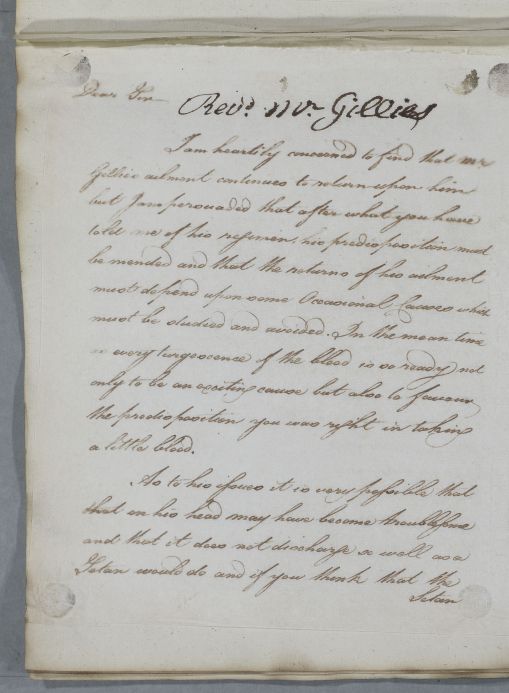 Dear Sir
Revd. Mr. Gillies
I am heartily concerned to find that Mr
Gillies ailment continues to return upon him
but I am perswaded that after what you have
told me of his regimen, his predisposition must
be mended and that the returns of his ailment
must depend upon some Occasional Causes which
must be studied and avoided. In the mean time
as every turgescence of the blood is so ready not
only to be an exciting cause but also to favour
the predisposition you was right in taking
a little blood.
As to his issues it is very possible that
that on his head may have become troublesome
and that it does not discharge so well as a
Setan would do and if you think that the
Setan